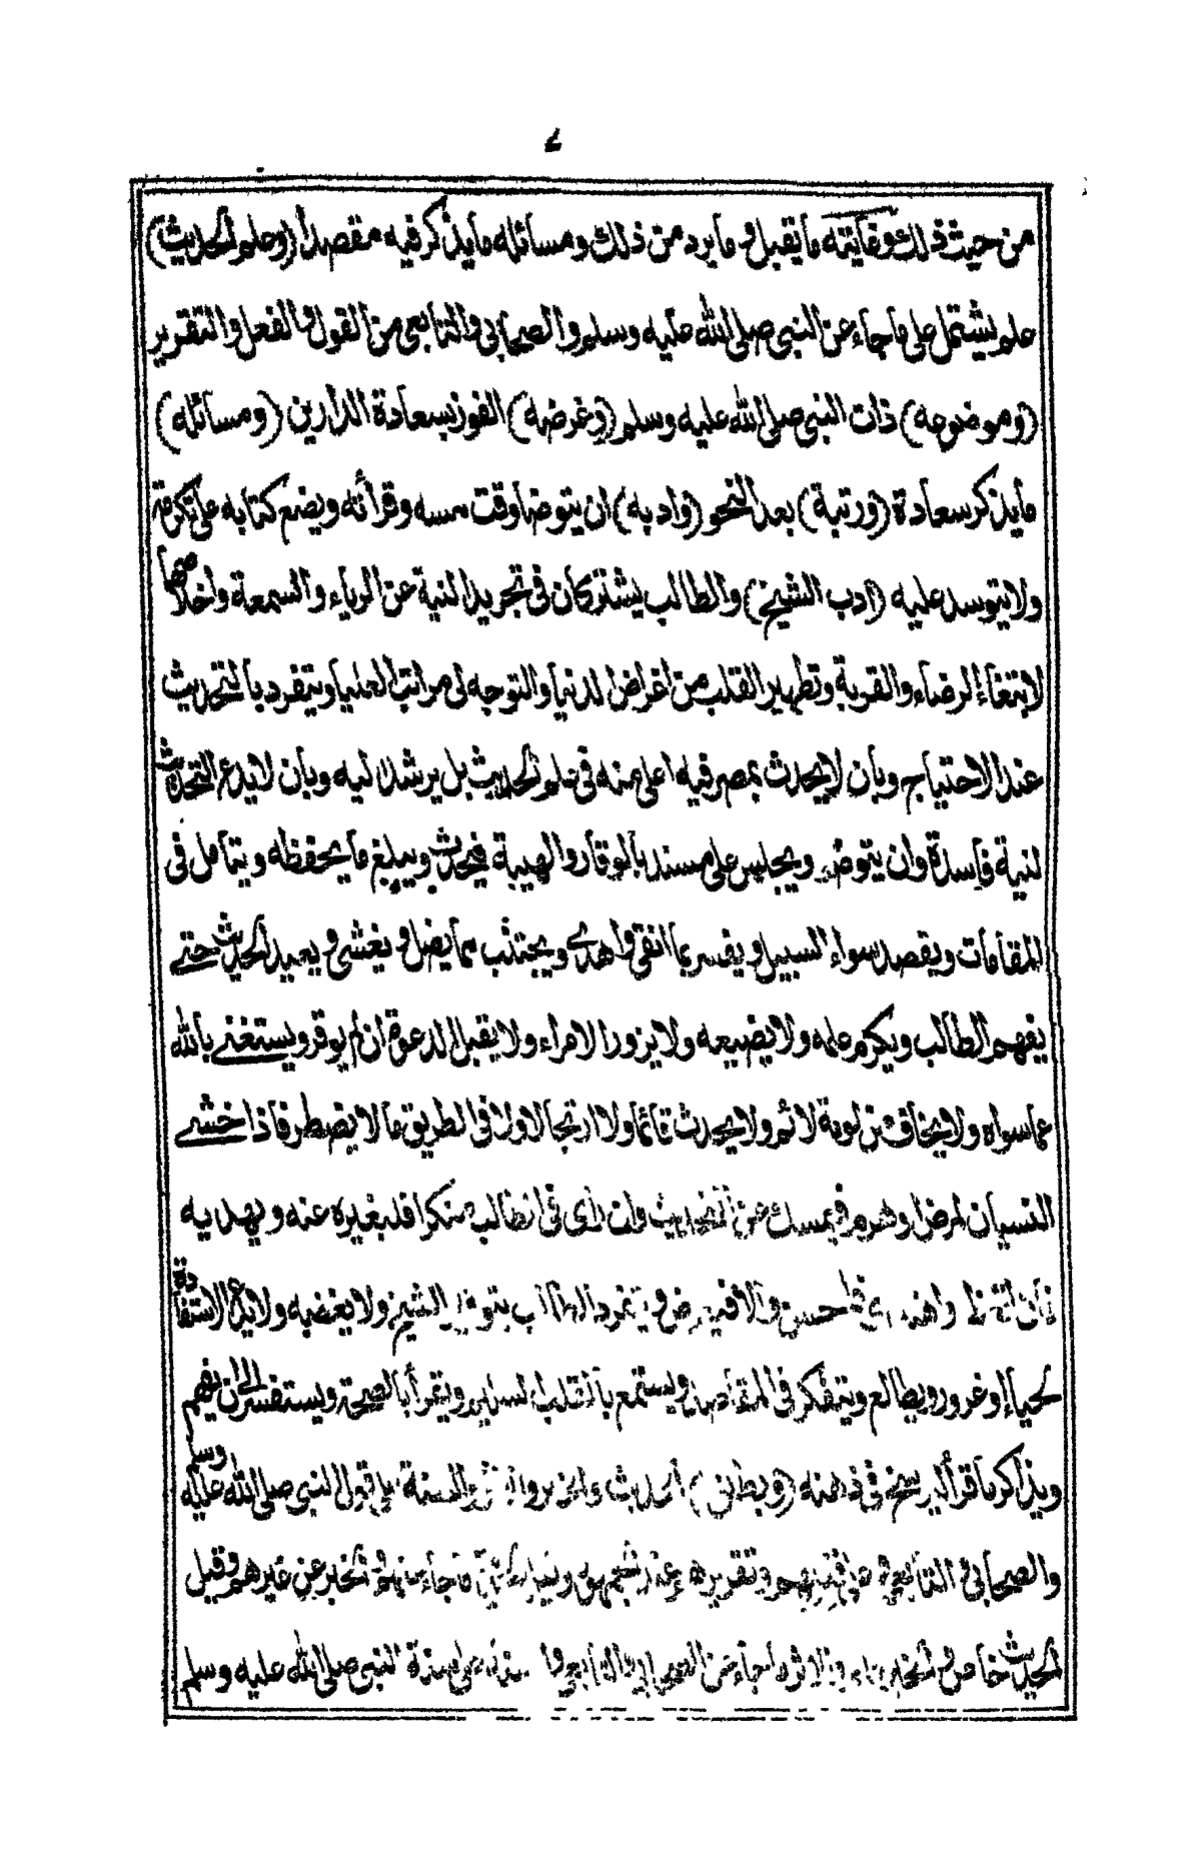 من حيث ذلك وغايته ما يقبل و ما يرد من ذلك ومسائله ما يذكر فيه مقصدا (وعلم الحديث)
علم يشتمل على ما جاء عن النبي صلى الله عليه وسلم والصحابي والتابعي من القول والفعل والتقرير
(وموضوعه) ذات النبي صلى الله عليه وسلم (وغرضه) الفوز بسعادة الدارين (ومسائله)
ما يذكر سعادة (ورتبة) بعد النحو (وادبه) ان يتوضا وقت مسه وقرأته ويضع كتابه على تكرمة
ولا يتوسد عليه (ادب الشيخ) والطالب يشتركان في تجريد النية عن الرياء والسمعة واخلاصها
لابتغاء الرضاء والقربة وتطهير القلب من اغراض الدنيا والتوجه الى مراتب العليا ويتفرد بالتحديث
عند الاحتياج وبان لا يحدث بمصر فيه اعلى منه في علم الحديث بل يرشد اليه وبان لا يدع التحديث
لنية فاسدة وان يتوضأ ويجلس على مسند بالوقار والهيبة فيحدث ويبلغ ما يحفظه ويتأمل في
المقامات ويقصد سواء السبيل ويفسر بما انقى واهدى ويجتنب مما يضل و يغشى و يعيد الحديث حتى
يفهم الطالب ويكرم علمه ولا يضيعه ولا يزور الامراء ولا يقبل الدعوة ان لم يوقر ويستغنى بالله
عما سواه ولا يخاف من لومة لائم ولا يحدث قائما ولا ارتجالا ولا في الطريق ما لا يضطر فاذا خشى
النسيان لمرض او هرم فيمسك عن التحديث وان رأى في الطالب منكرا فليغيره عنه ويهديه
فان اتعظ واهتدى فحسن والا فيعرض ويتفرد الطالب بتوقير الشيخ ولا يغضبه ولا يدع الاستفادة
لحياء او غرور ويطالع ويتفكر في المقاصد ويستمع بالقلب السليم ويقرأ بالصحة ويستفسر الى ان يفهم
ويذاكر ما قرأ ليرسخ في ذهنه (ويطلق) الحديث والخبر والاثر والسنة على قول النبي صلى الله عليه وسلم
والصحابي والتابعي وفعلهم وتقريرهم عند بعضهم وقيل الحديث ما جاء منهم والخبر عن غيرهم وقيل
الحديث خاص والخبر عام والاثر ما جاء من الصحابي والتابعي سنة النبي صلى الله عليه وسلم